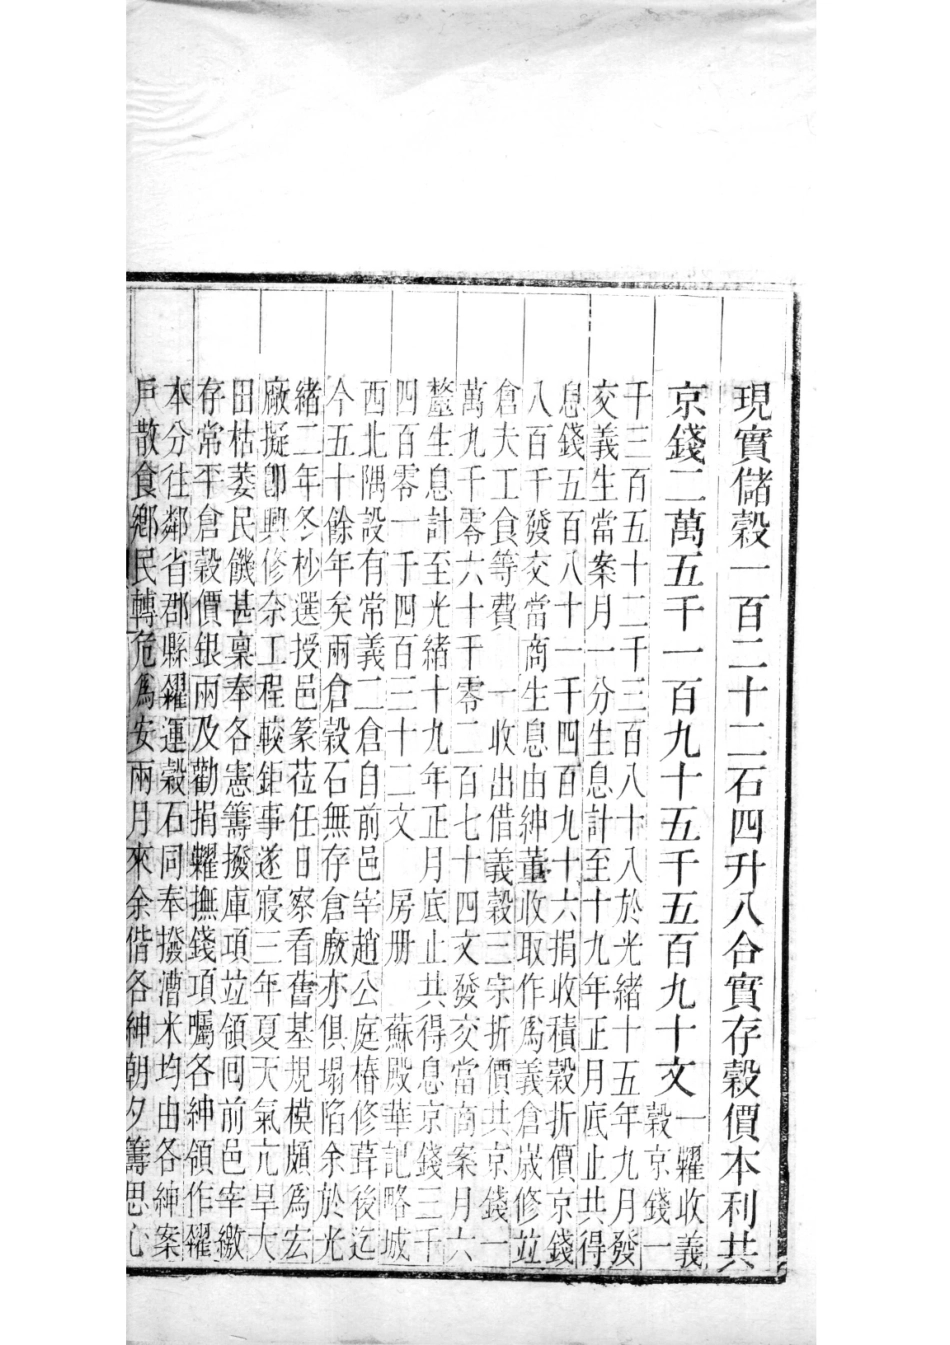 現實儲穀一百二十二石四升八合實存穀價本利共
京錢二萬五千一百九十五千五百九十文
一糶收義
穀京錢一
千三百五十二千三百八十八於光緒十五年九月發
交義生當案月一分生息計至十九年正月底止共得
息錢五百八十一千四百九十六捐收積穀折價京錢
八百千發交當商生息由紳董收取作爲義倉歲修竝
倉夫工食等費 一收出借義穀三宗折價共京錢一
萬九千零六十千零二百七十四文發交當商案月六
釐生息計至光緒十九年正月底止共得息京錢三千
四百零一千四百三十二文 房册 蘇殿華記略城
西北隅設有常義二倉自前邑宰趙公庭椿修葺後迄
今五十餘年矣兩倉穀石無存倉廒亦俱塌陷余於光
緒二年冬杪選授邑篆莅任日察看舊基規模頗爲宏
廠擬卽興修奈工程較鉅事遂寢三年夏天氣亢旱大
田枯萎民饑甚稟奉各憲籌撥庫項竝領囘前邑宰繳
存常平倉穀價銀兩及勸捐糶撫錢項囑各紳領作糴
本分往鄰省郡縣糴運穀石同奉撥漕米均由各紳案
戶散食鄉民轉危爲安兩月來余偕各紳朝夕籌思心